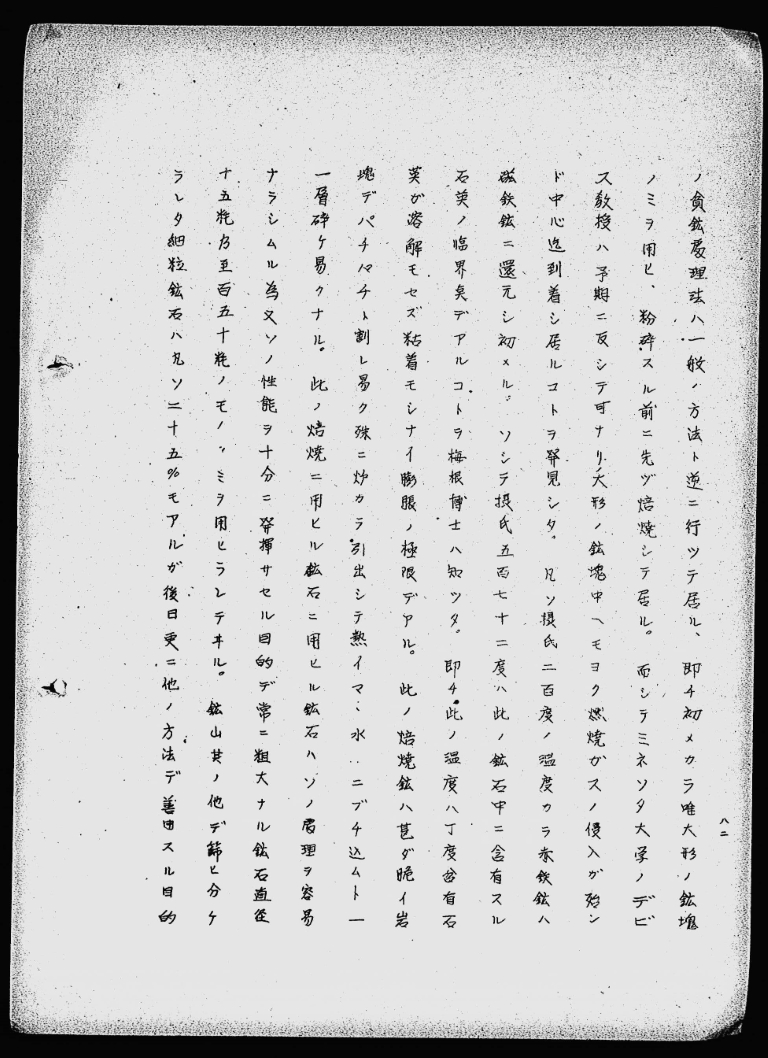 八二
ノ貧鉱処理法ハ一般ノ方法ト逆ニ行ツテ居ル、即チ初メカラ唯大形ノ鉱塊
ノミヲ用ヒ、粉砕スル前ニ先ヅ焙焼シテ居ル。而シテミネソタ大学ノデビ
ス教授ハ予期ニ反シテ可ナリ大形ノ鉱塊中ヘモヨク燃焼ガスノ侵入ガ殆ン
ド中心迄到着シ居ルコトヲ発見シタ。凡ソ摂氏二百度ノ温度カラ赤鉄鉱ハ
磁鉄鉱ニ還元シ初メル。ソシテ摂氏五百七十二度ハ此ノ鉱石中ニ含有スル
石英ノ臨界点デアルコトヲ梅根博士ハ知ツタ。即チ此ノ温度ハ丁度含有石
英ガ溶解モセズ粘着モシナイ膨脹ノ極限デアル。此ノ焙焼鉱ハ甚ダ脆イ岩
塊デパチパチト割レ易ク殊ニ炉カラ引出シテ熱イママ水ニブチ込ムト一
一層砕ケ易クナル。此ノ焙焼ニ用ヒル鉱石ニ用ヒル鉱石ハソノ処理ヲ容易
ナラシムル為又ソノ性能ヲ十分ニ発揮サセル目的デ常ニ粗大ナル鉱石直径
十五粍乃至百五十粍ノモノノミヲ用ヒラレテヰル。鉱山其ノ他デ篩ヒ分ケ
ラレタ細粒鉱石ハ凡ソ二十五%モアルガ後日更ニ他ノ方法デ善用スル目的